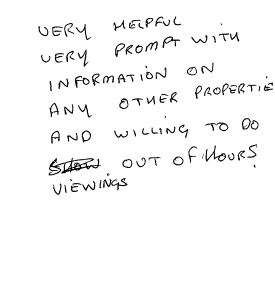 VERY HELPFUL
VERY PROMPT WITH
INFORMATION ON
ANY OTHER PROPERTIES
AND WILLING TO DO
OUT OF HOURS
VIEWINGS